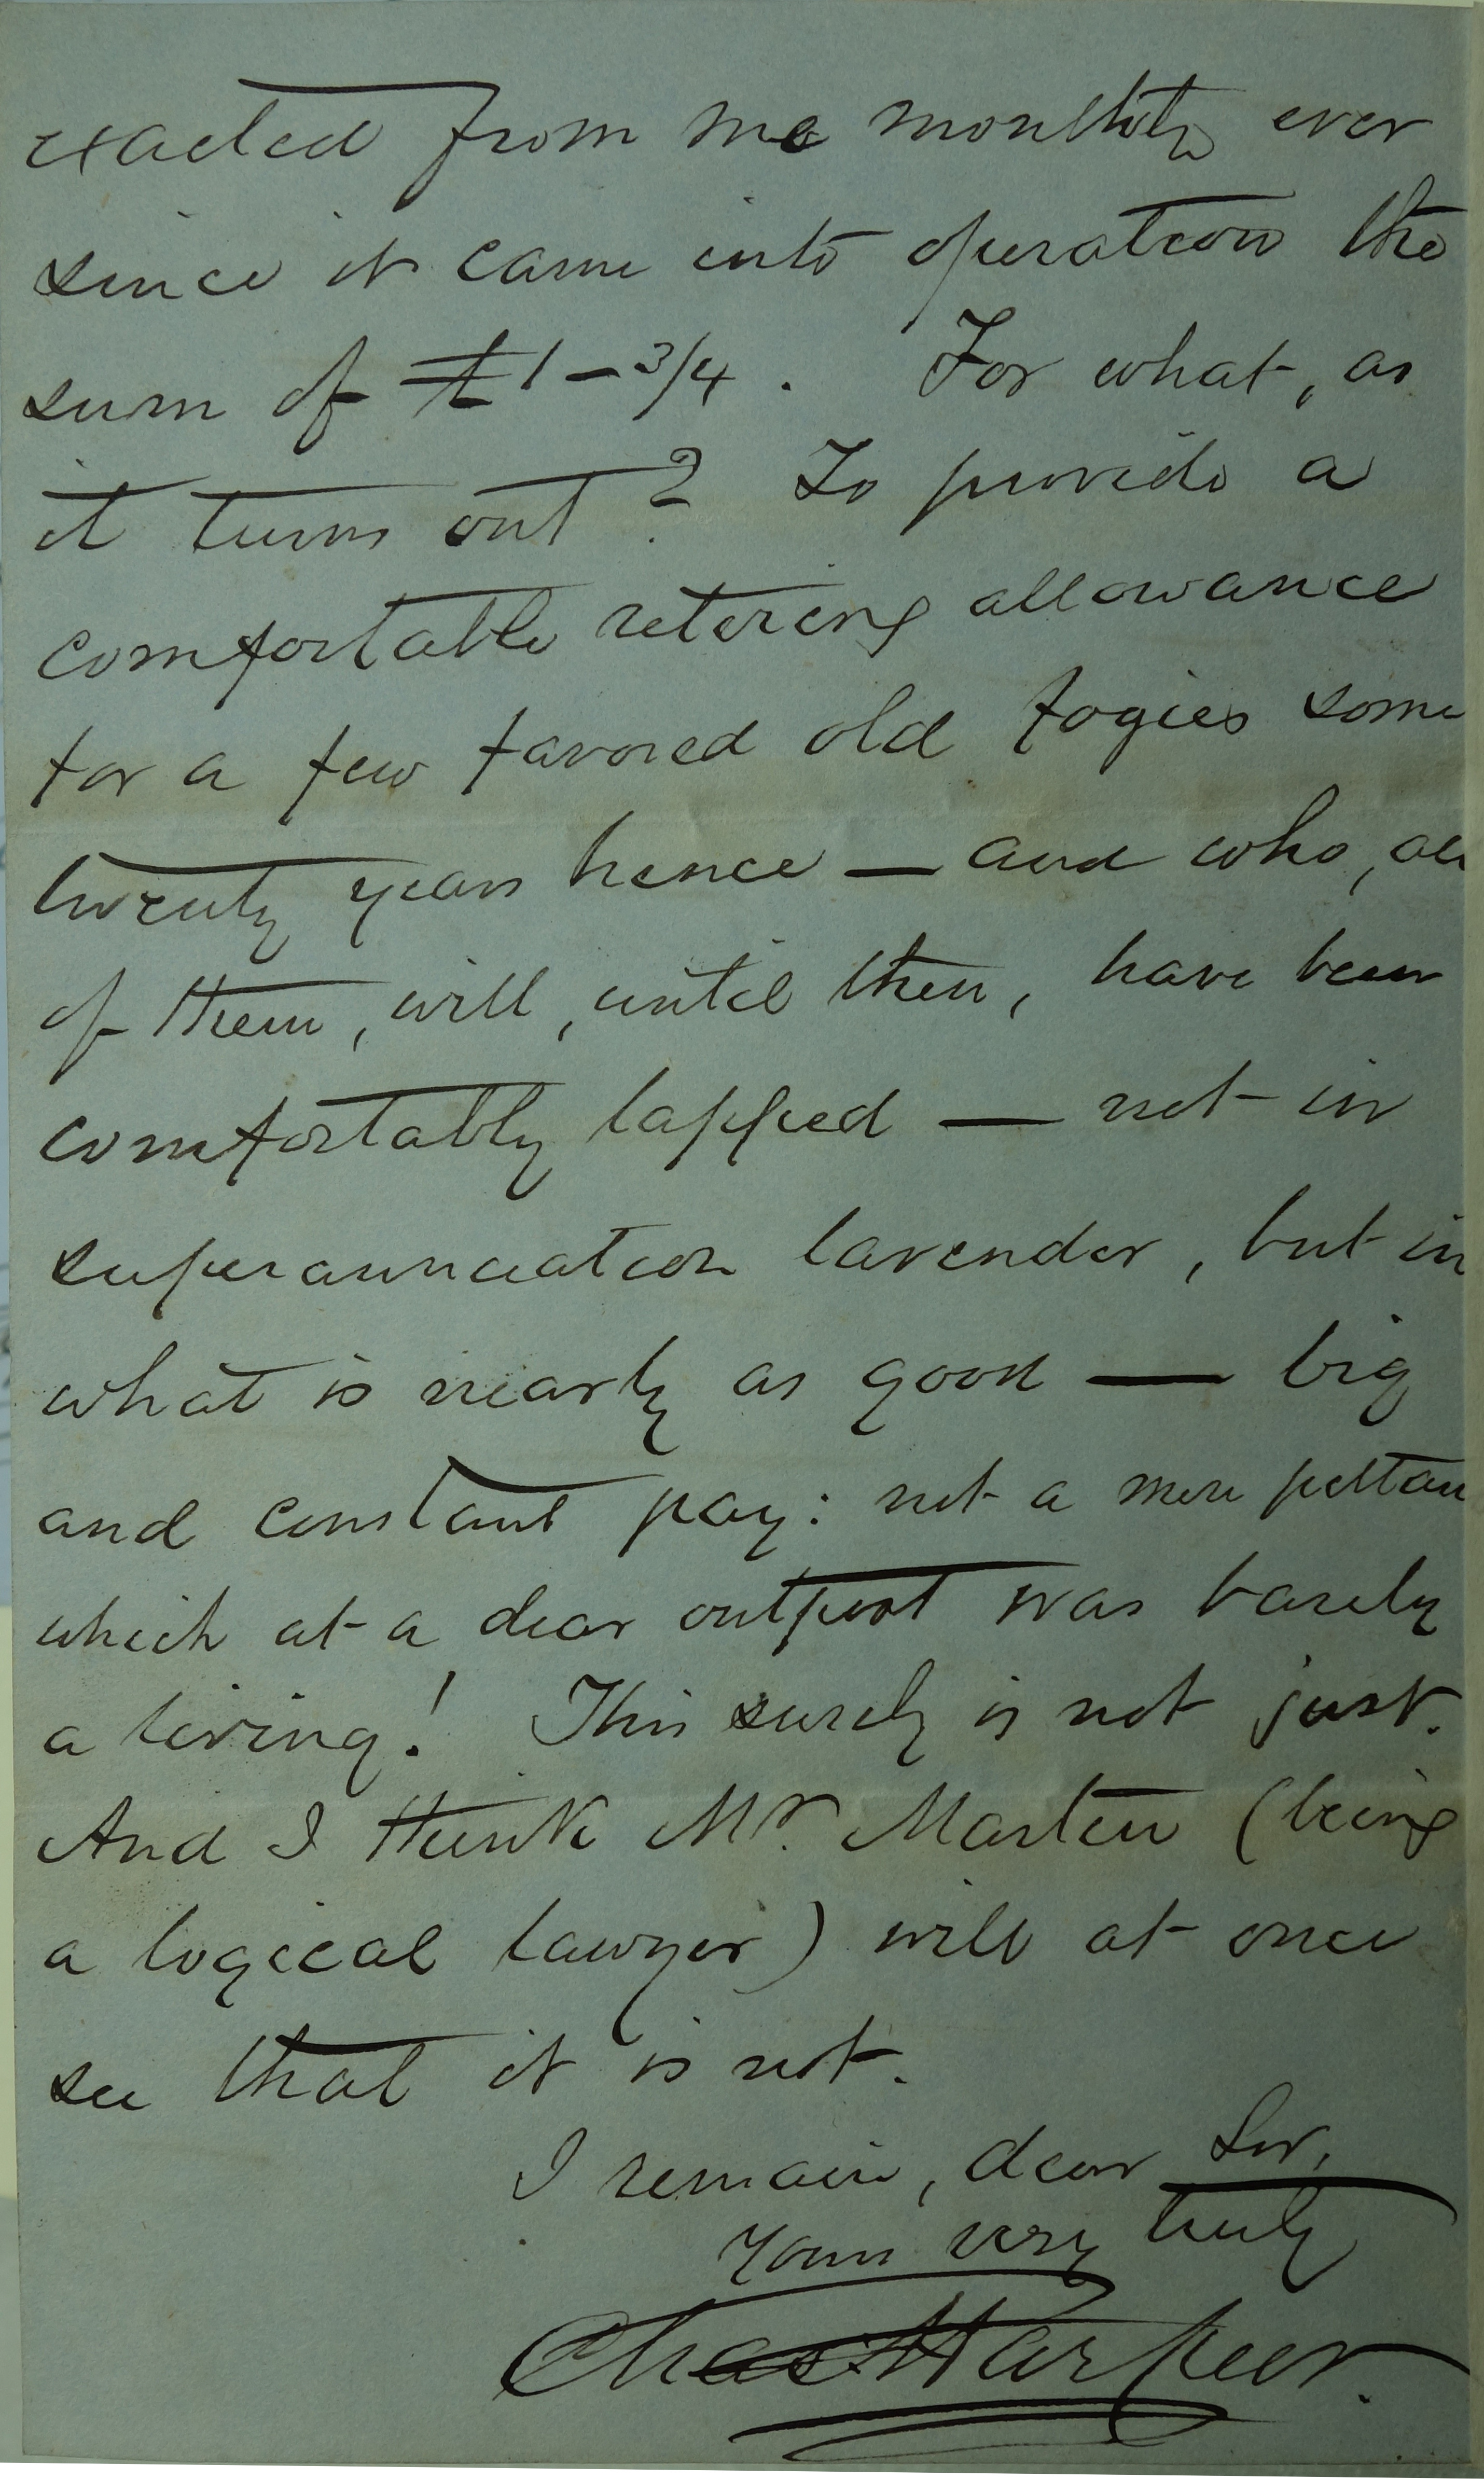 exacted from me monthly ever
since it came into operation the
sum of £1–3/4. For what, as
it turns out? To provide a
comfortable retiring allowance
for a few favored old fogies some
twenty years hence — and who, all
of them, will, until then, have been
comfortably lapped — not in
superannuation lavender, but in
what is nearly as good — big
and constant pay: not a mere pittan
which at a dear outpost was barely
a living! This surely is not just.
And I think Mr. Martin (being
a logical lawyer) will at once
see that it is not.
I remain, dear Sir,
Yours very truly
Chas Harpur.